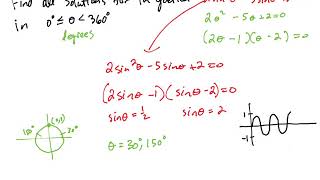 Find all solutions
in 0° ≤ θ < 360°
degrees
2θ² - 5θ + 2 = 0
(2θ - 1)(θ - 2) = 0
2sin²θ - 5sinθ + 2 = 0
(2sinθ - 1)(sinθ - 2) = 0
sinθ = 1/2 sinθ = 2
θ = 30°, 150°
150° 30°
1
-1